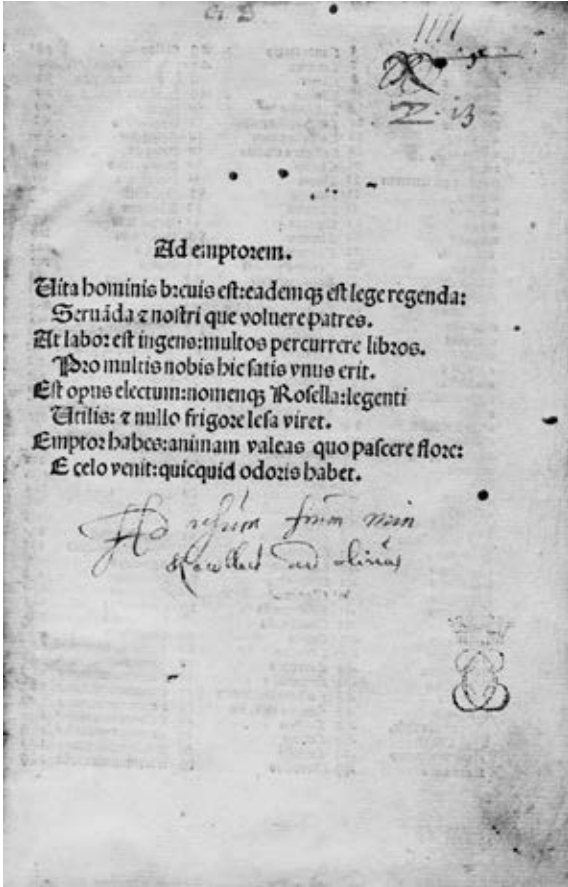 IIII
Z · i3
Ad emptorem.
Uita hominis breuis est:eademqꝫ est lege regenda:
Seruāda ⁊ nostri que voluere patres.
At labor est ingens:multos percurrere libros.
Pro multis nobis hic satis vnus erit.
Est opus electum:nomenqꝫ Rosella:legenti
Utilis: ⁊ nullo frigore lesa viret.
Emptor habes:animam valeas quo pascere flore:
E celo venit:quicquid odoris habet.
Ad usum frūm min
Recollect ad olivas